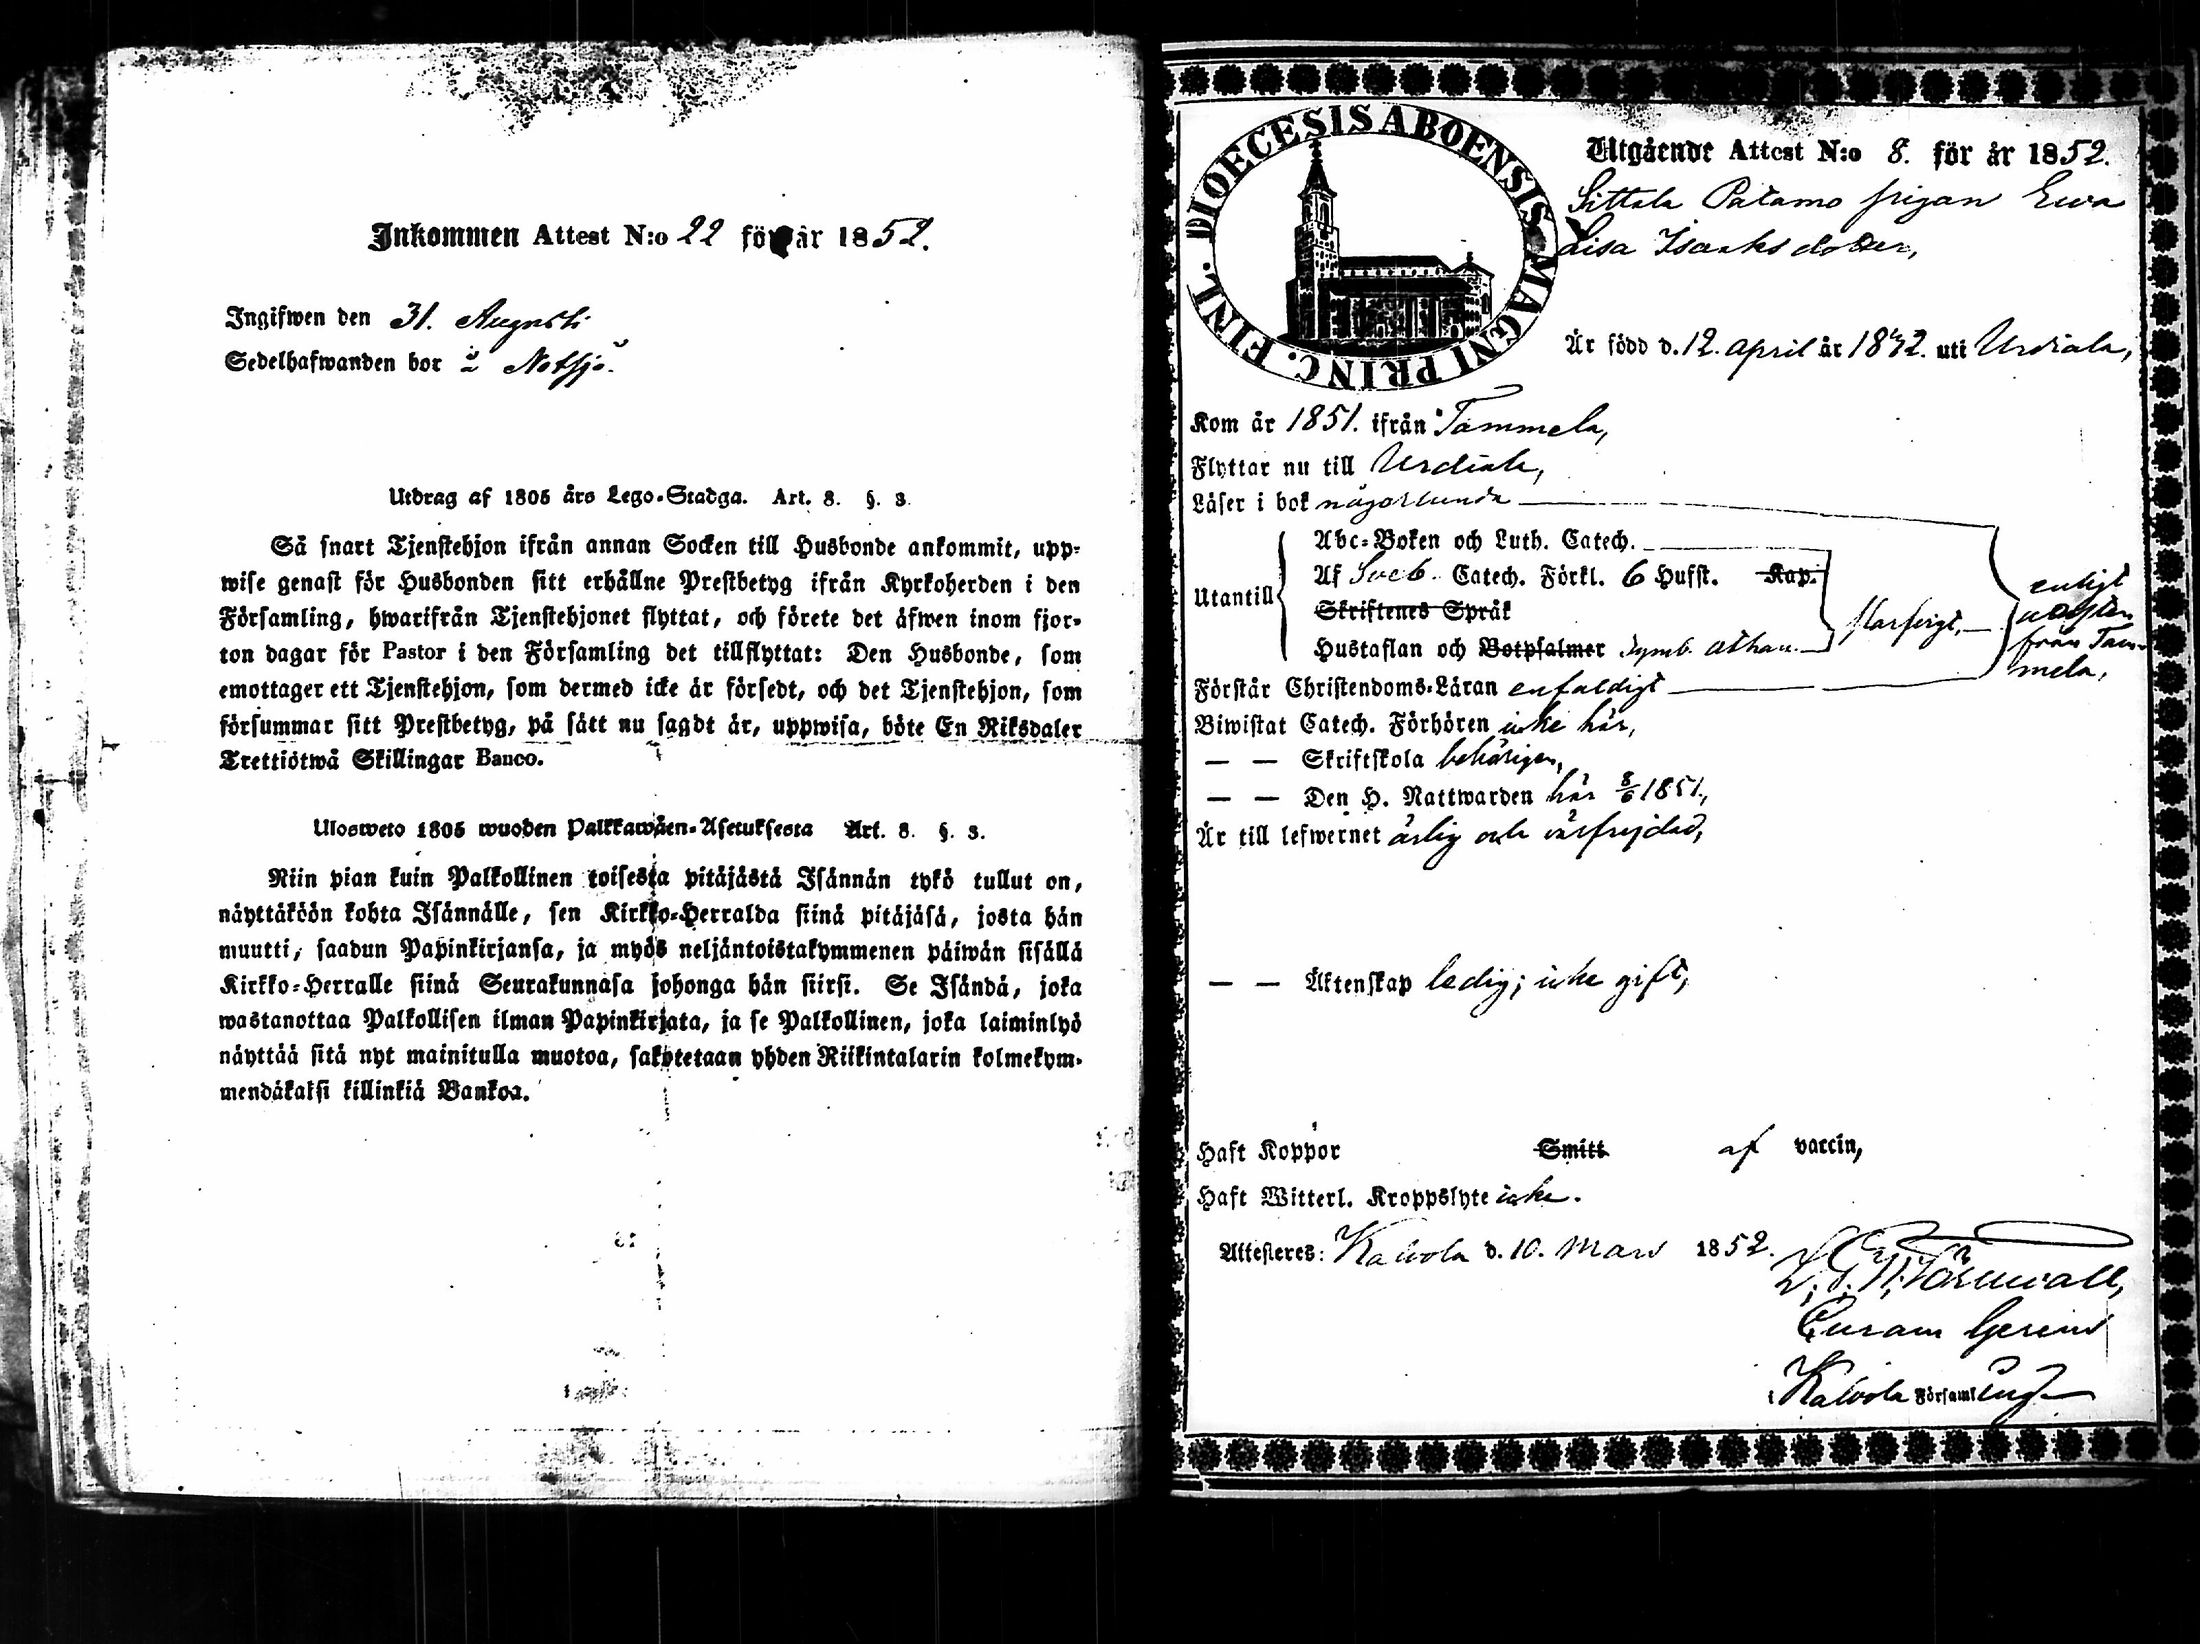 Inkommen Attest N:o 22 för år 1852.
Ingifwen den 31. Augusti
Sedelhafwanden bor i Notsjö.
Utdrag af 1805 års Lego-Stadga. Art. 8. §. 3.
Så snart Tjenstehjon ifrån annan Socken till Husbonde ankommit, upp-
wise genast för Husbonden sitt erhållne Prestbetyg ifrån Kyrkoherden i den
Församling, hwarifrån Tjenstehjonet flyttat, och förete det äfwen inom fjor-
ton dagar för Pastor i den Församling det tillflyttat: Den Husbonde, som
emottager ett Tjenstehjon, som dermed icke är försedt, och det Tjenstehjon, som
försummar sitt Prestbetyg, på sätt nu sagdt är, uppwisa, böte En Riksdaler
Trettiötwå Skillingar Banco.
Ulosweto 1805 wuoden Palkkawäen-Asetuksesta Art. 8. §. 3.
Niin pian kuin Palkollinen toisesta pitäjästä Isännän tykö tullut on,
näyttäköön kohta Isännälle, sen Kirkko-Herralda siinä pitäjäsä, josta hän
muutti, saadun Papinkirjansa, ja myös neljäntoistakymmenen päiwän sisällä
Kirkko-Herralle siinä Seurakunnasa johonga hän siirsi. Se Isändä, joka
wastanottaa Palkollisen ilman Papinkirjata, ja se Palkollinen, joka laiminlyö
näyttää sitä nyt mainitulla muotoa, sakotetaan yhden Riikintalarin kolmekym-
mendäkaksi killinkiä Bankoa.
DIOECESIS ABOENSIS MAGNI PRINC. FINL.
Utgående Attest N:o 8. för år 1852.
Sittala Patamo pigan Ewa
Lisa Isaaksdotter,
Är född d. 12. april år 1832. uti Urdiala,
Kom år 1851. ifrån Tammela,
Flyttar nu till Urdiala,
Läser i bok någorlunda
Utantill
Abc-Boken och Luth. Catech.
Af Sveb. Catech. Förkl. 6 Hufst. Kap.
Skriftenes Språk
Hustaflan och Botpsalmer Symb. Athan.
enligt
attesten
från Tam-
mela,
Förstår Christendoms-Läran enfaldigt
Biwistat Catech. Förhören icke här,
— — Skriftskola behörigen,
— — Den H. Nattwarden här 8/6 1851,
Är till lefwernet ärlig och wälfrejdad,
— — Äktenskap ledig; icke gift,
Haft Koppor Smitt af vaccin,
Haft Witterl. Kroppslyte icke.
Attesteres: Kalvola d. 10. Mars 1852.
Törnwall,
Curam Gerens
i Kalvola Församling